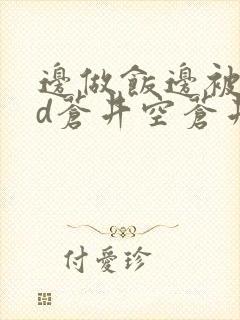 邊做飯邊被
d蒼井空蒼井
付愛珍